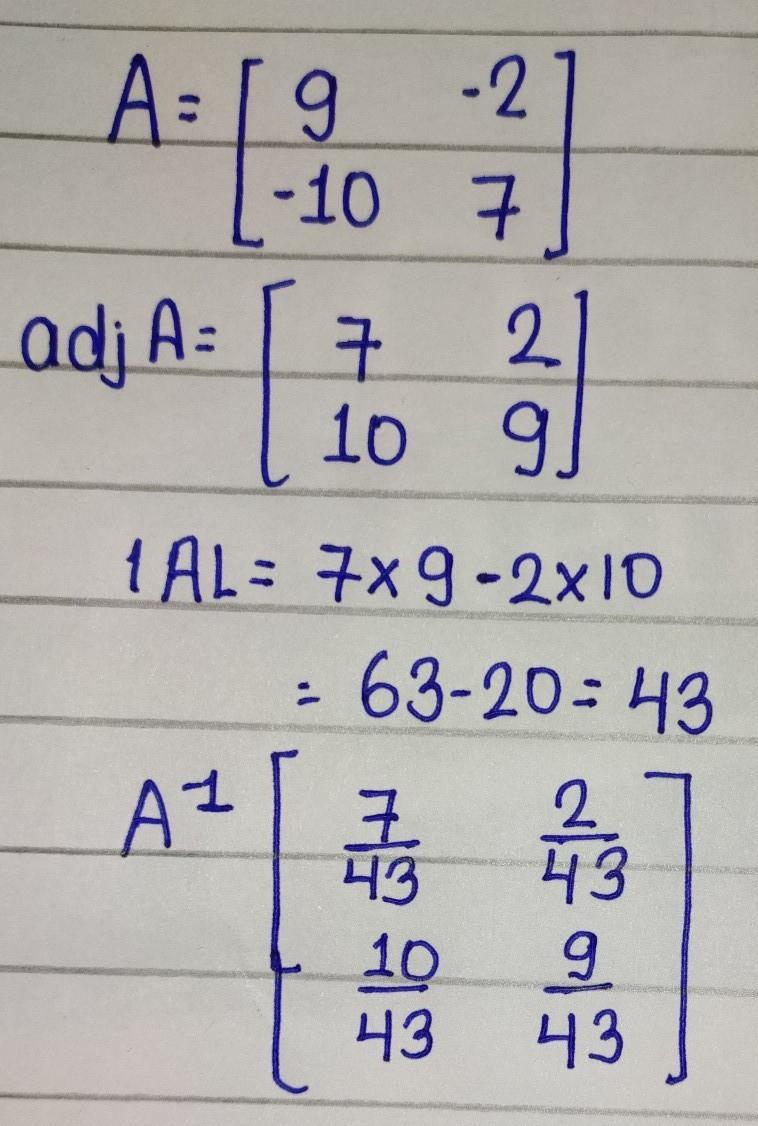 A = [ 9 -2
-10 7 ]
adj A = [ 7 2
10 9 ]
|A| = 7 × 9 - 2 × 10
= 63 - 20 = 43
A⁻¹ [ 7/43 2/43
10/43 9/43 ]